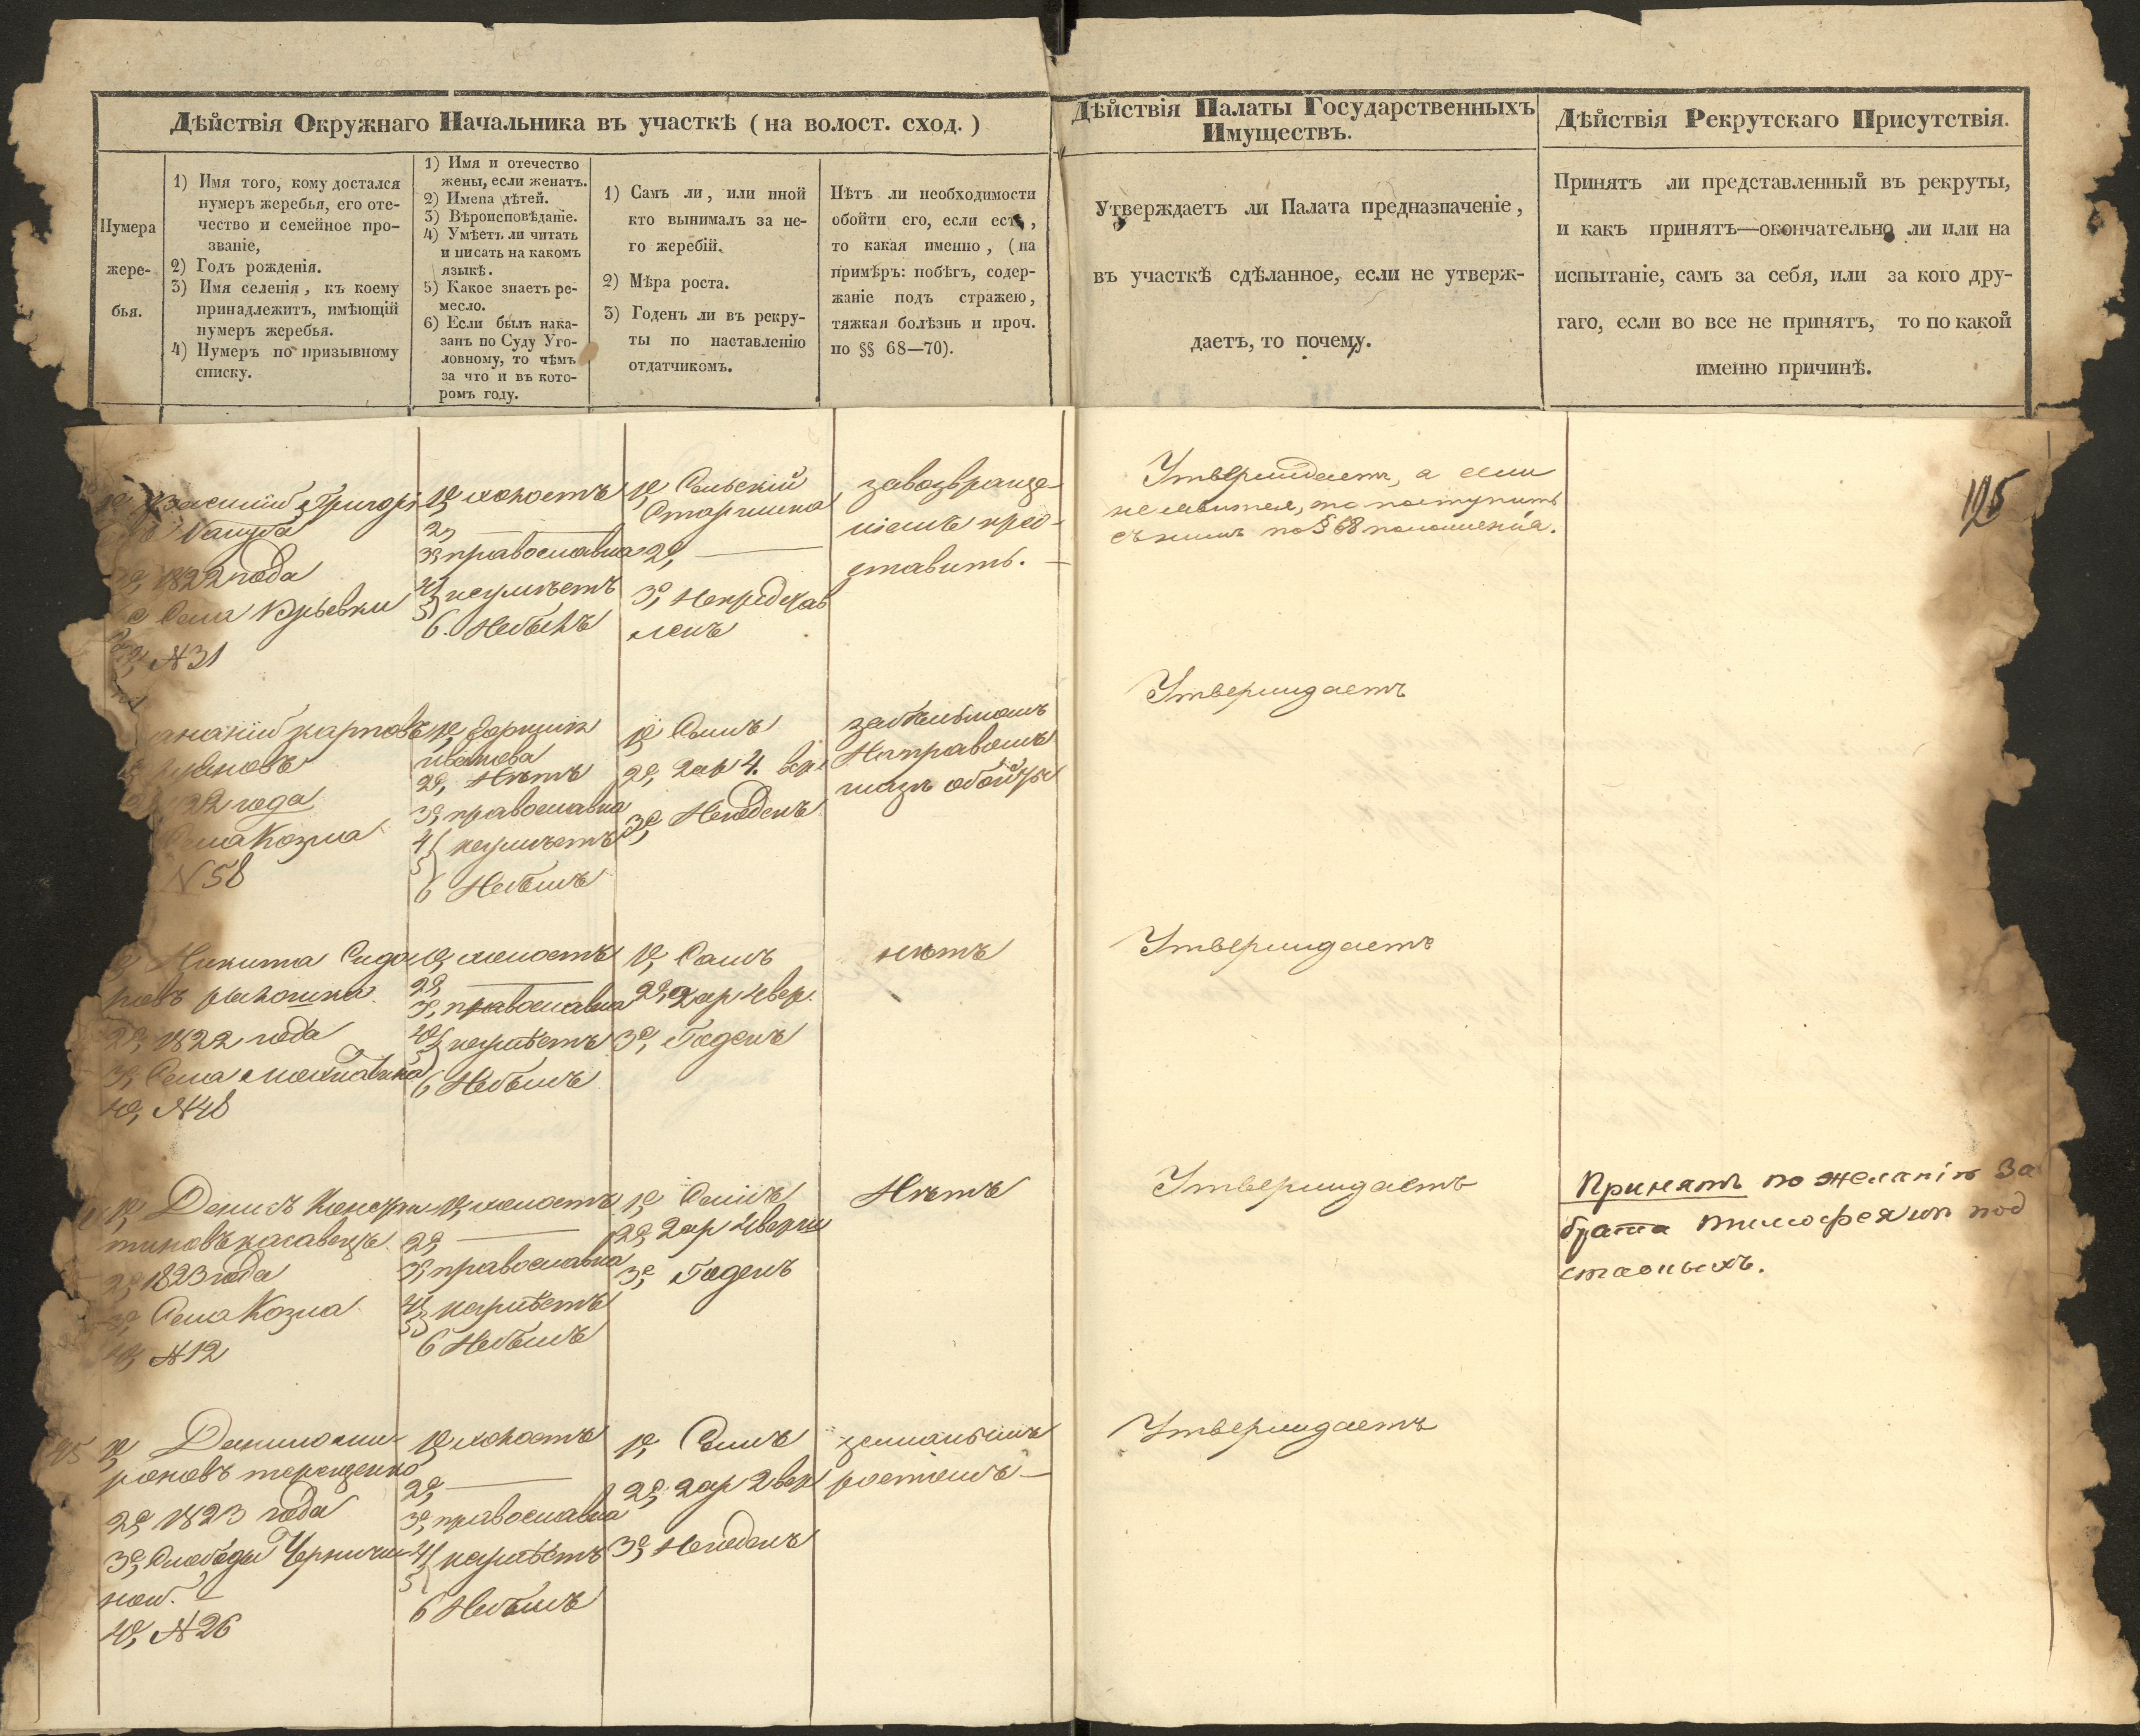 Дѣйствія Окружнаго Начальника въ участкѣ (на волост. сход.)
Нумера
жере-
бья.
1) Имя того, кому достался
нумеръ жеребья, его оте-
чество и семейное про-
званіе,
2) Годъ рожденія.
3) Имя селенія, къ коему
принадлежитъ, имѣющій
нумеръ жеребья.
4) Нумеръ по призывному
списку.
1) Имя и отечество
жены, если женатъ.
2) Имена дѣтей.
3) Вѣроисповѣданіе.
4) Умѣетъ ли читать
и писать на какомъ
языкѣ.
5) Какое знаетъ ре-
месло.
6) Если былъ нака-
занъ по Суду Уго-
ловному, то чѣмъ
за что и въ кото-
ромъ году.
1) Самъ ли, или иной
кто вынималъ за не-
го жеребій.
2) Мѣра роста.
3) Годенъ ли въ рекру-
ты по наставленію
отдатчикомъ.
Нѣтъ ли необходимости
обойти его, если есть,
то какая именно, (на
примѣръ: побѣгъ, содер-
жаніе подъ стражею,
тяжкая болѣзнь и проч.
по §§ 68—70).
Дѣйствія Палаты Государственныхъ
Имуществъ.
Утверждаетъ ли Палата предназначеніе,
въ участкѣ сдѣланное, если не утверж-
даетъ, то почему.
Дѣйствія Рекрутскаго Присутствія.
Принятъ ли представленный въ рекруты,
и какъ принятъ—окончательно ли или на
испытаніе, самъ за себя, или за кого дру-
гаго, если во все не принятъ, то по какой
именно причинѣ.
125
Василій Григорь
1822 года
Села Юрьевки
N 31
1е, холостъ
2,
3, православна
4
5 неумѣетъ
6. Небылъ
1е, Сельскій
Старшина
2е,
3е, Непредстав
ленъ
завозвраще-
ніемъ пред-
ставить.
Утверждаетъ, а если
неявится, то поступить
съ нимъ по § 68 положенія.
ананій карповъ
22 года
Села Козла
N 58
иванова
2е, Нѣтъ
3е, православна
4
5 неумѣетъ
6 Небылъ
1е, Самъ
2е, 2 ар 4. вер
3е, Негоденъ
забѣльмомъ
Направомъ
глазѣ обойти
Утверждаетъ
Никита Сидо
ровъ
2е, 1822 года
3е, Села
4е, N 48
1е, холостъ
2е,
3е, православна
4е
5 неумѣетъ
6 Небылъ
1е, Самъ
2е, 2 ар 4 вер.
3е, Годенъ
нѣтъ
Утверждаетъ
1е, Денисъ Констан
тиновъ касавецъ
2е, 1823 года
3е, Села Козла
4е, N 12
1е, холостъ
2е,
3е, православна
4е
5 неумѣетъ
6 Небылъ
1е, Самъ
2е, 2 ар 4 верш
3е, Годенъ
Нѣтъ
Утверждаетъ
Принятъ по желанію за
брата Тимофея изъ под
ставныхъ.
15 1е, Данило ми-
роновъ терещенко
2е, 1823 года
3е, Слободы Чернечи-
ной.
4е, N 26
1е, холостъ
2е,
3е, православна
4
5 неумѣетъ
6 Небылъ
1е, Самъ
2е, 2 ар 2 вер
3е, Негоденъ
замалымъ
ростомъ
Утверждаетъ